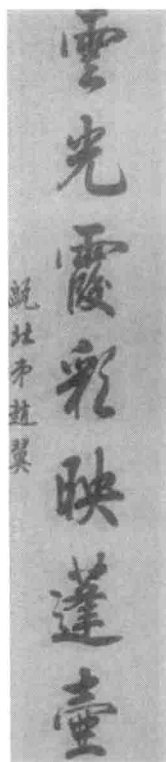 雲光霞彩映蓬壺
甌北弟趙翼